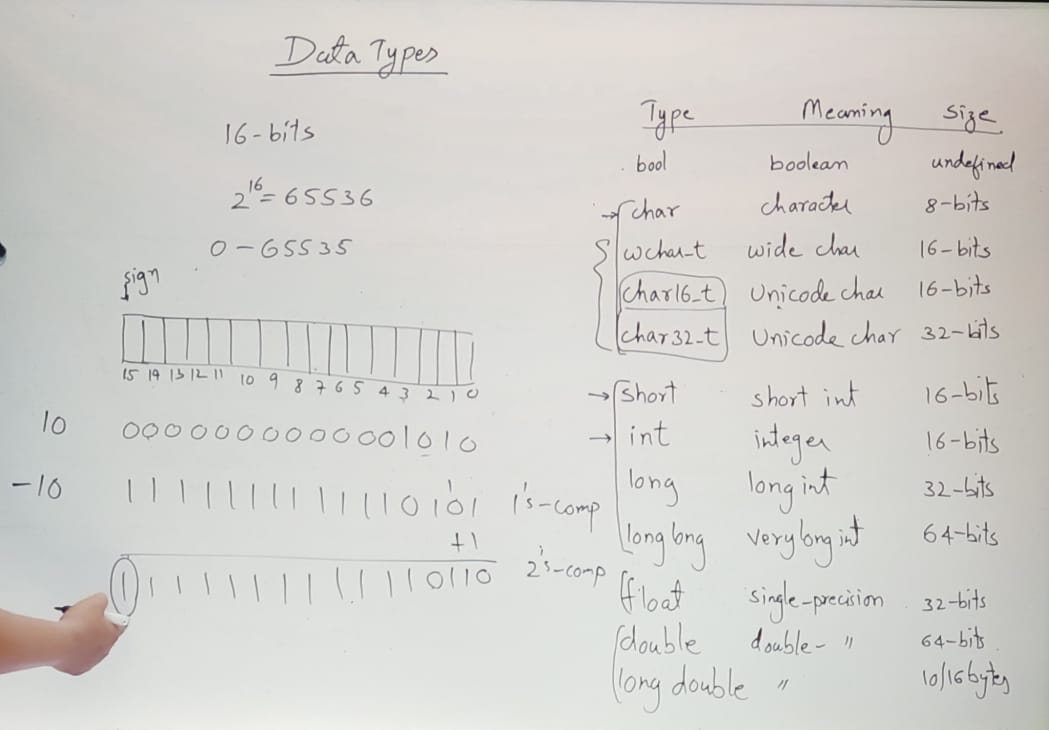 Data Types
16-bits
2^16 = 65536
0 - 65535
sign
15 14 13 12 11 10 9 8 7 6 5 4 3 2 1 0
10 0000000000001010
-10 1111111111110101 1's-comp
1
+1
1111111111110110 2's-comp
Type Meaning Size
bool boolean undefined
→ char character 8-bits
wchar_t wide char 16-bits
char16_t Unicode char 16-bits
char32_t Unicode char 32-bits
→ short short int 16-bits
→ int integer 16-bits
long long int 32-bits
long long very long int 64-bits
float single-precision 32-bits
double double- " 64-bits
long double " 10/16 bytes